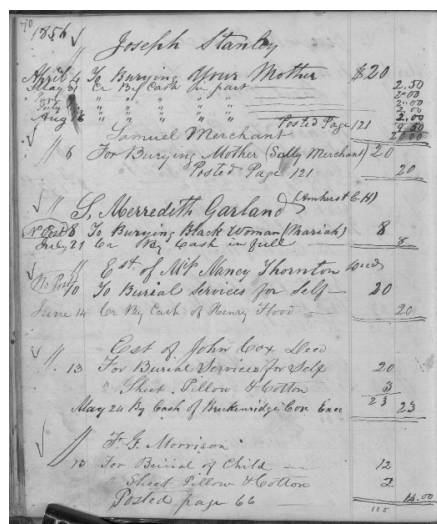 70
1856 Joseph Stanley
April 4 To Burying Your Mother $20
May 31 Cr By Cash in part 2.50
" " " " " 2.00
July " " " " " 2.00
" " " " " 2.00
Aug " " " " " 2.00
Posted Page 121
Samuel Merchant
" 6 For Burying Mother (Sally Merchant) 20
Posted Page 121 20
" S. Merredith Garland (Amherst C.H)
8 To Burying Black Woman (Mariah) 8
July 21 Cr By Cash in full 8
" Est of Miss Nancy Thornton Decd
No Post 10 To Burial Services for Self 20
June 14 Cr By Cash of Henry Flood 20
" Est of John Cox Decd
13 For Burial Services for Self 20
" Sheet Pillow & Cotton 3
23
May 24 By Cash of Breckenridge Cox Exec 23
" F. G. Morrison
13 For Burial of Child 12
" Sheet Pillow & Cotton 2
Posted page 66 14.00
105